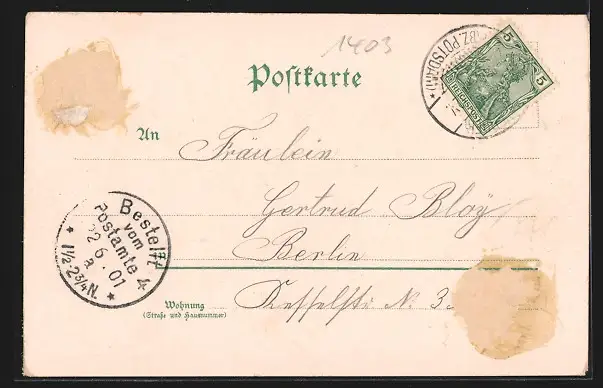 1403
Postkarte
5
5
REICHSPOST
(BZ. POTSDAM)
An
Fräulein
Gertrud Bloÿ
Berlin
Wohnung
(Straße und Hausnummer)
Kesselstr N. 3
Bestellt
vom
Postamte 4
22.6.01
1½-2¾N.